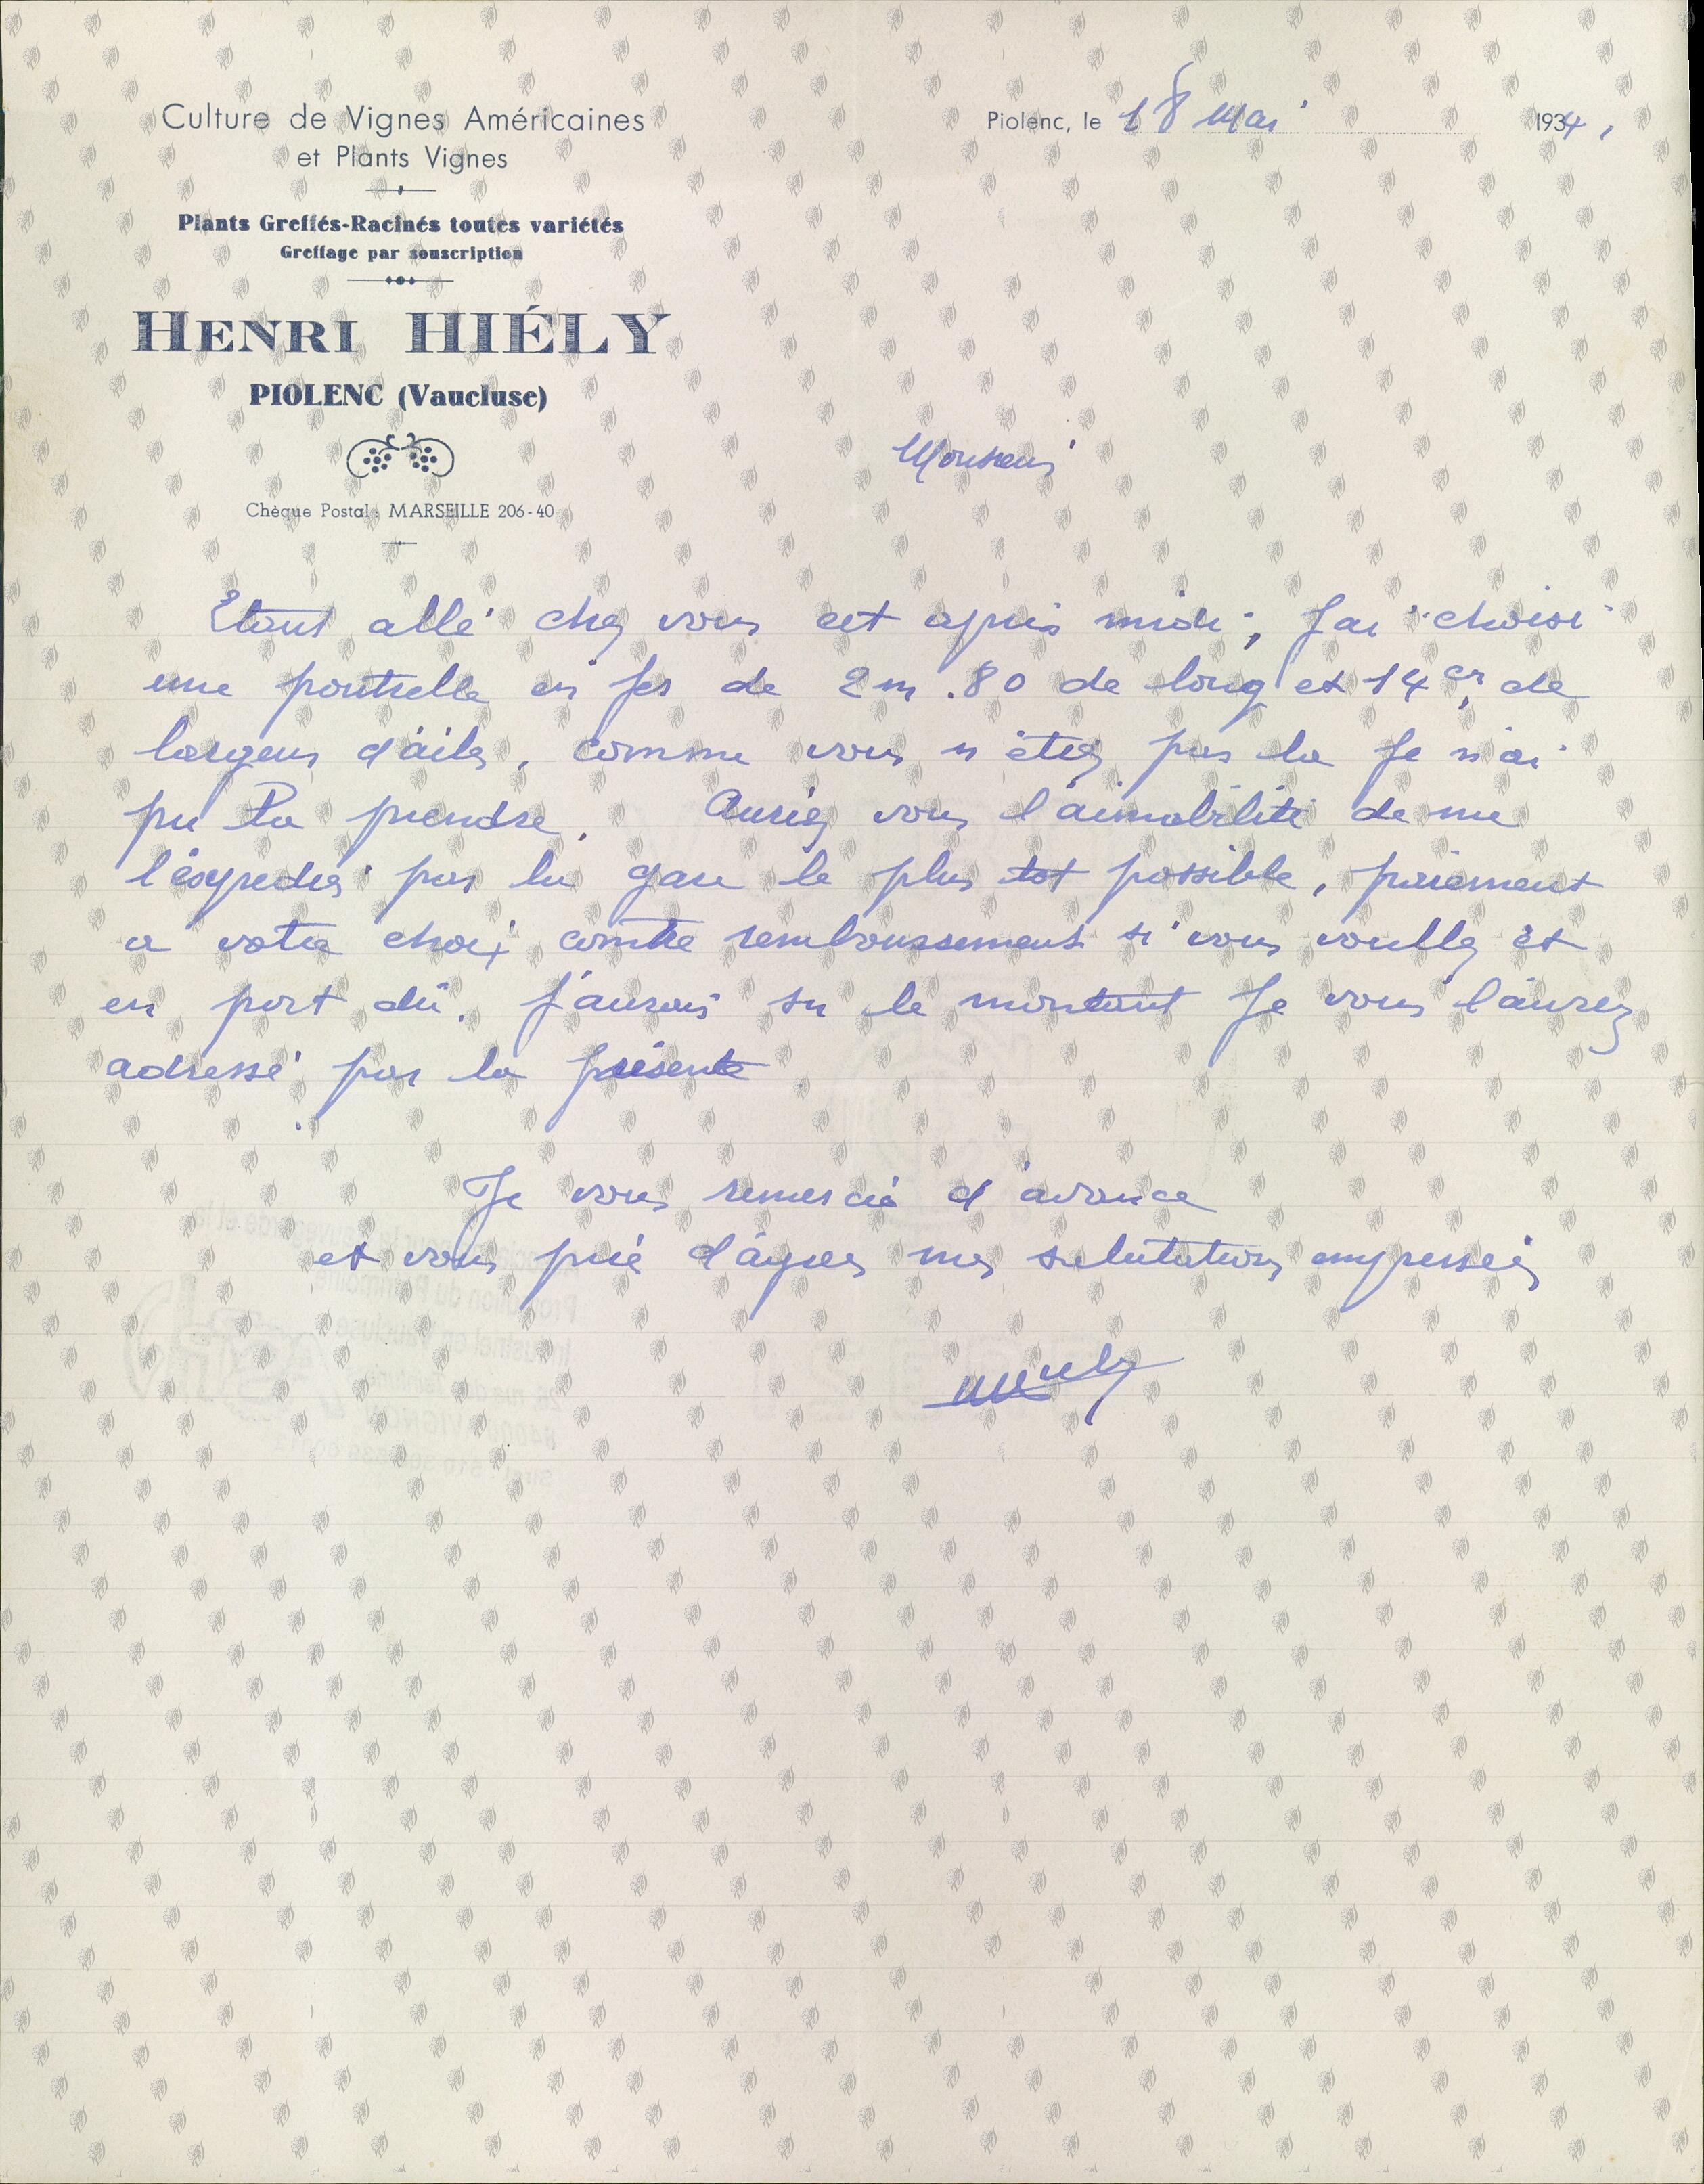 Culture de Vignes Américaines
et Plants Vignes
Plants Greffés-Racinés toutes variétés
Greffage par souscription
HENRI HIÉLY
PIOLENC (Vaucluse)
Chèque Postal : MARSEILLE 206-40
Piolenc, le 18 Mai 1934,
Monsieur
Etant allé chez vous cet après midi, J'ai choisi
une poutrelle en fer de 2m.80 de long et 14 cm de
largeur d'aile, comme vous n'étiez pas la Je n'ai
pu la prendre. Auriez vous l'aimabilité de me
l'éxpedier par la gare le plus tot possible, paiement
a votre choix contre remboursement si vous voullez et
en port dû. J'aurais su le montant Je vous l'aurez
adressé par la présente
Je vous remercie d'avance
et vous prie d'agréer mes salutations empressées